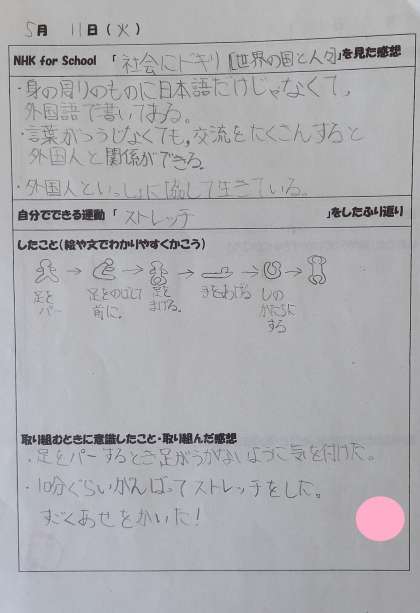 5月 11日(火)
NHK for School 「社会にドキリ[世界の国と人々]」を見た感想
・身の周りのものに日本語だけじゃなくて、
外国語で書いてある。
・言葉がつうじなくても、交流をたくさんすると
外国人と関係ができる。
・外国人といっしょに協して生きている。
自分でできる運動「ストレッチ 」をしたふり返り
したこと(絵や文でわかりやすくかこう)
→ → → → →
足を パー
足をのばして 前に。
足を まげる。
手をあげる
しの かたちに する
取り組むときに意識したこと・取り組んだ感想
・足をパーするとき足がうかないように気を付けた。
・10分ぐらいがんばってストレッチをした。
すごくあせをかいた!